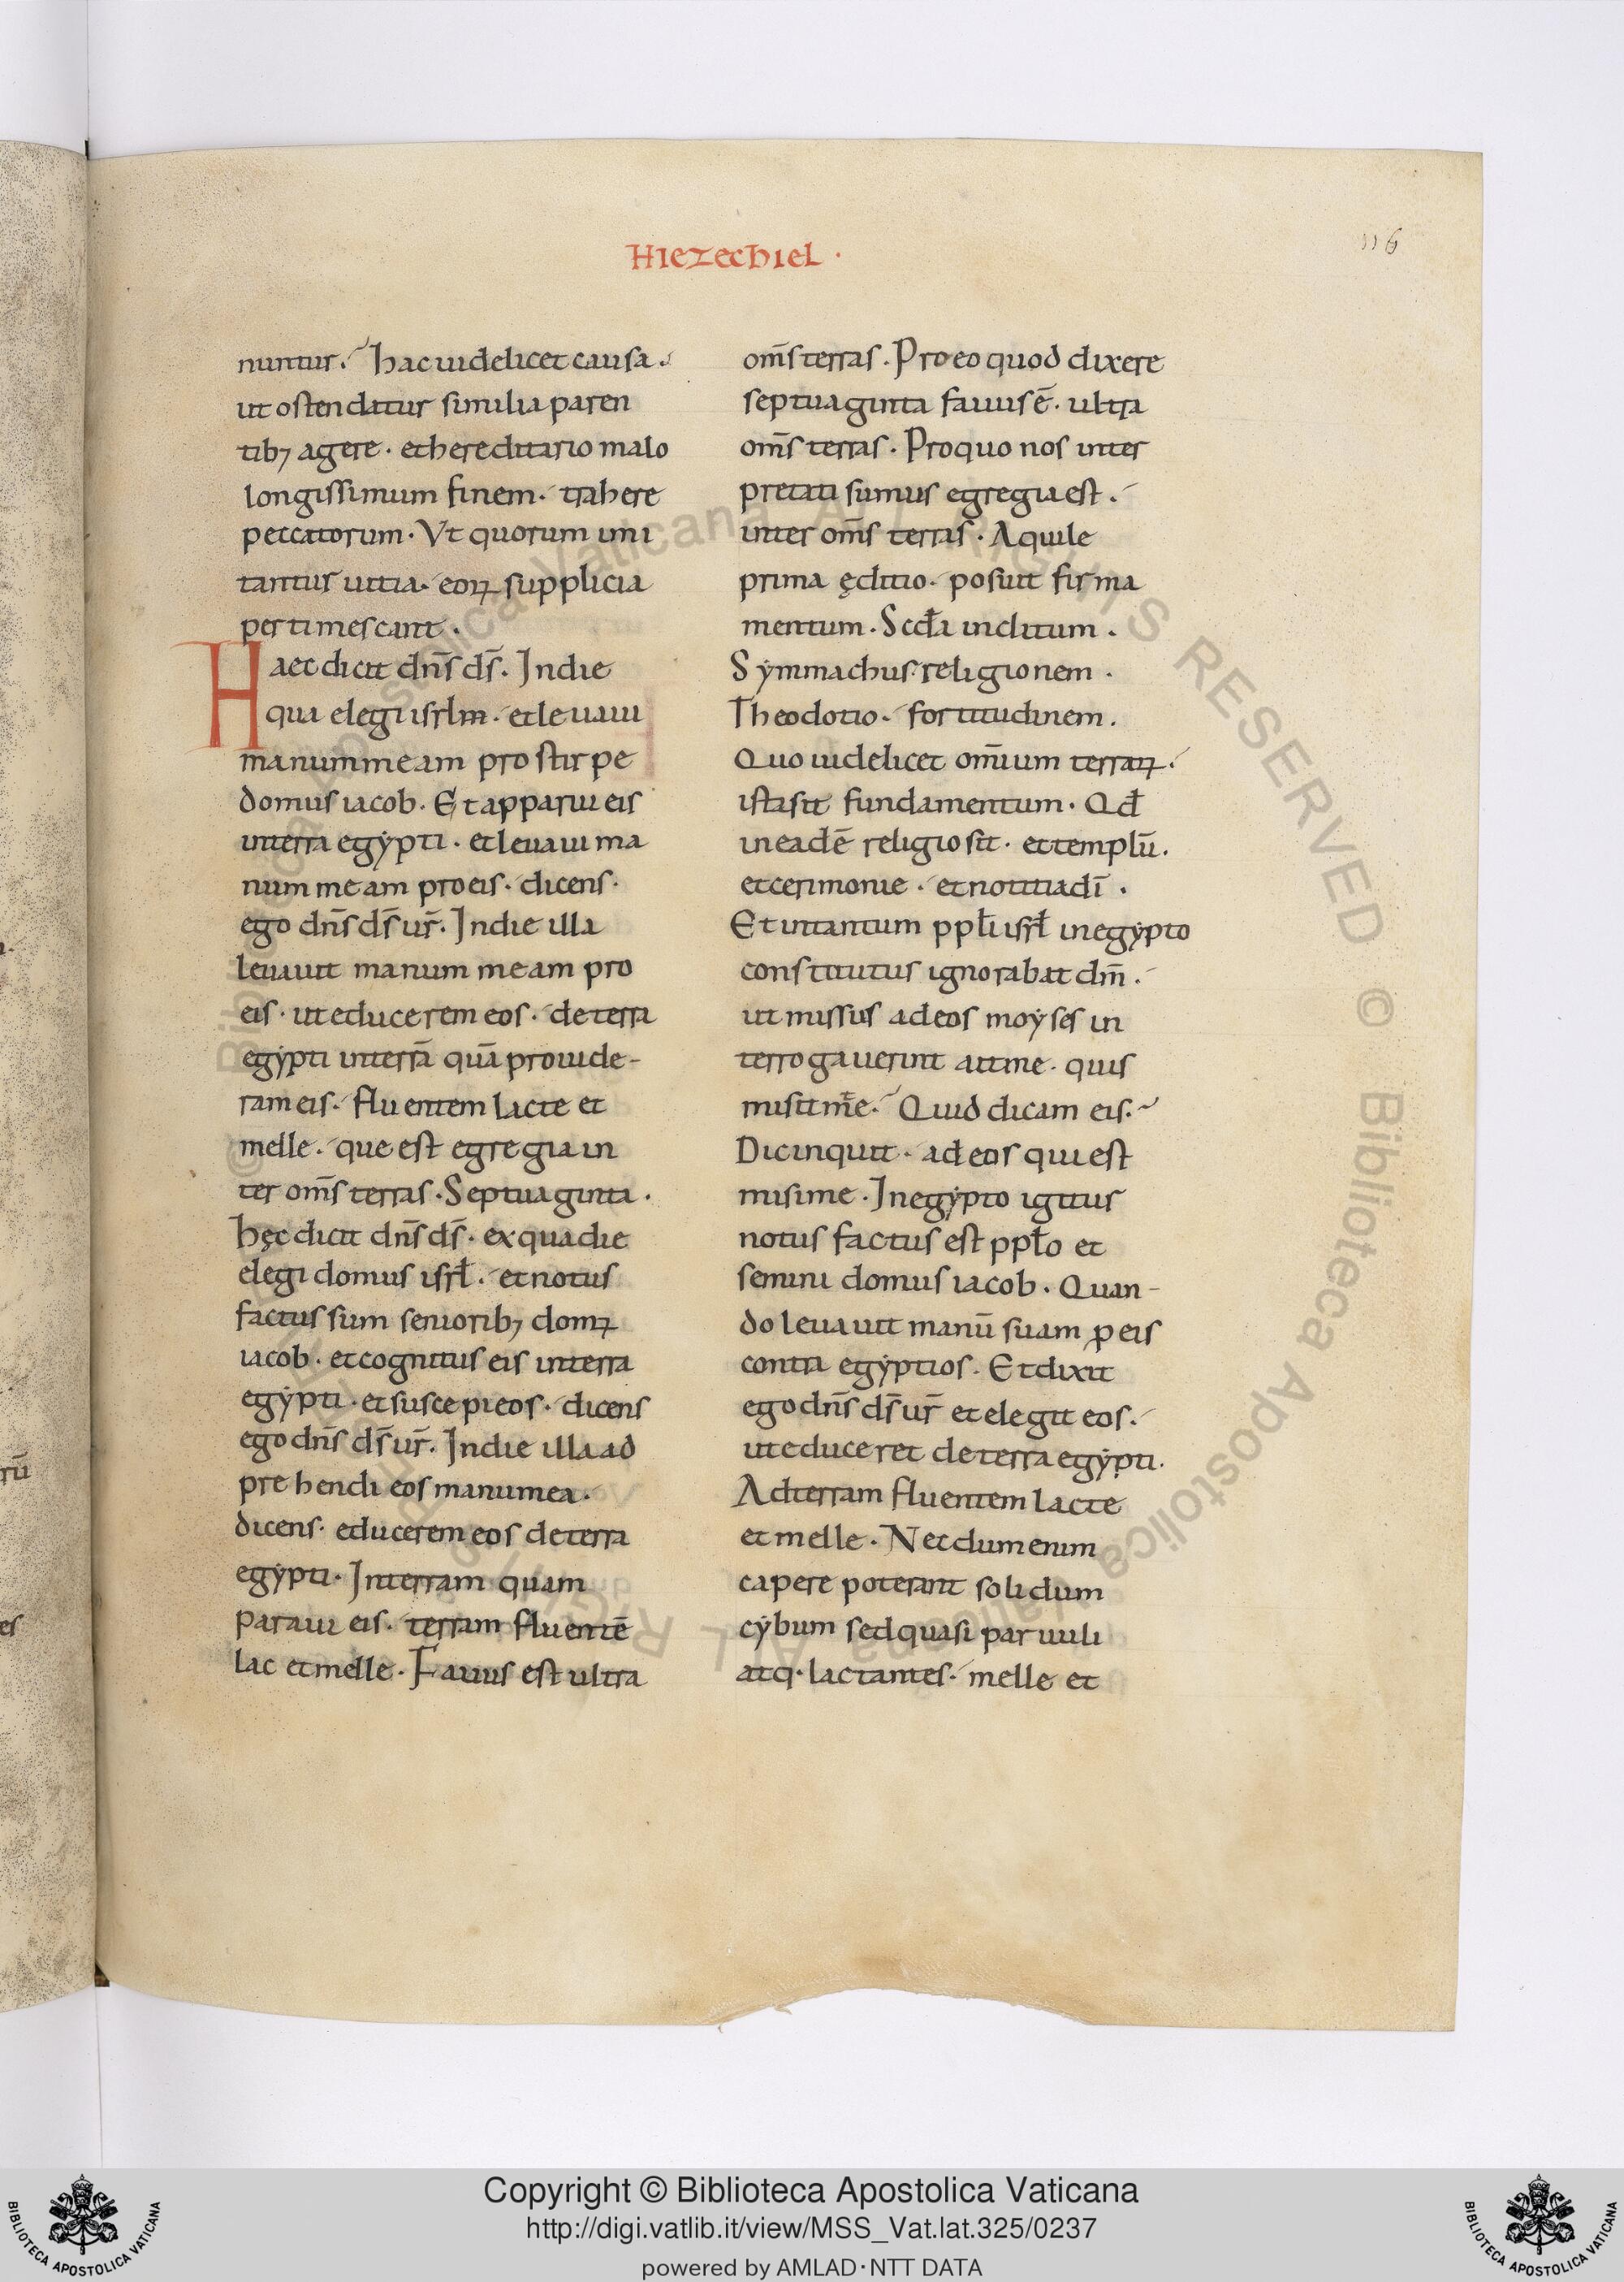 Hiezechiel ·
116
nuntur. Hac uidelicet causa.
ut ostendatur similia paren
tib; agere · et hereditario malo
longissimum finem · trahere
peccatorum · Vt quorum imi
tantur uitia · eoꝝ supplicia
pertimescant .
Haec dicit dn̄s ds̄. In die
qua elegi isrlm · et leuaui
manum meam pro stirpe
domus iacob. Et apparui eis
in terra egẏpti · et leuaui ma
num meam pro eis · dicens ·
ego dn̄s ds̄ ur̄. In die illa
leuauit manum meam pro
eis · ut educerem eos · de terra
egẏpti in terrā quā prouide-
ram eis · fluentem lacte et
melle · que est egregia in
ter om̄s terras · Septuaginta .
hęc dicit dn̄s ds̄ · ex qua die
elegi domus isrł · et notus
factus sum seniorib; domꝝ
iacob · et cognitus eis in terra
egẏpti · et suscepi eos · dicens
ego dn̄s ds̄ ur̄. In die illa ad
prehendi eos manu mea .
dicens · educerem eos de terra
egẏpti · In terram quam
paraui eis · terram fluentē
lac et melle · Fauus est ultra
om̄s terras . Pro eo quod dixere
septuaginta fauus ē · ultra
om̄s terras · Pro quo nos inter
pretati sumus egregia est .
inter om̄s terras · Aquile
prima ęditio · posuit firma
mentum · Scda inclitum .
Sẏmmachus religionem .
Theodotio · fortitudinem .
Quo uidelicet om̄ium terraꝝ .
ista sit fundamentum · Qđ
in eadē religio sit · et templū .
et cerimonie · et notitia dī .
Et intantum ppłi isrł in egẏpto
constitutus ignorabat dm̄ .
ut missus ad eos moẏses in
terrogauerint aitme · quis
misit me · Quid dicam eis ·
Dic inquit · ad eos qui est
misi me · In egẏpto igitus
notus factus est ppło et
semini domus iacob · Quan-
do leuauit manū suam ꝑ eis
contra egẏptios · Et dixit
ego dn̄s ds̄ ur̄ et elegit eos .
ut educeret de terra egẏpti .
Ad terram fluentem lacte
et melle · Necdum enim
capere poterant solidum
cẏbum sed quasi paruuli
atq· lactantes · melle et
rū
es
© Biblioteca Apostolica Vaticana ALL RIGHTS RESERVED © Biblioteca Apostolica Vaticana ALL RIGHTS RESERVED
Copyright © Biblioteca Apostolica Vaticana
http://digi.vatlib.it/view/MSS_Vat.lat.325/0237
powered by AMLAD·NTT DATA
BIBLIOTECA APOSTOLICA VATICANA
BIBLIOTECA APOSTOLICA VATICANA